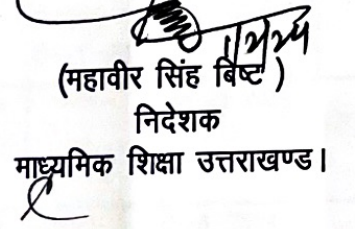 (महावीर सिंह बिष्ट )
निदेशक
माध्यमिक शिक्षा उत्तराखण्ड।